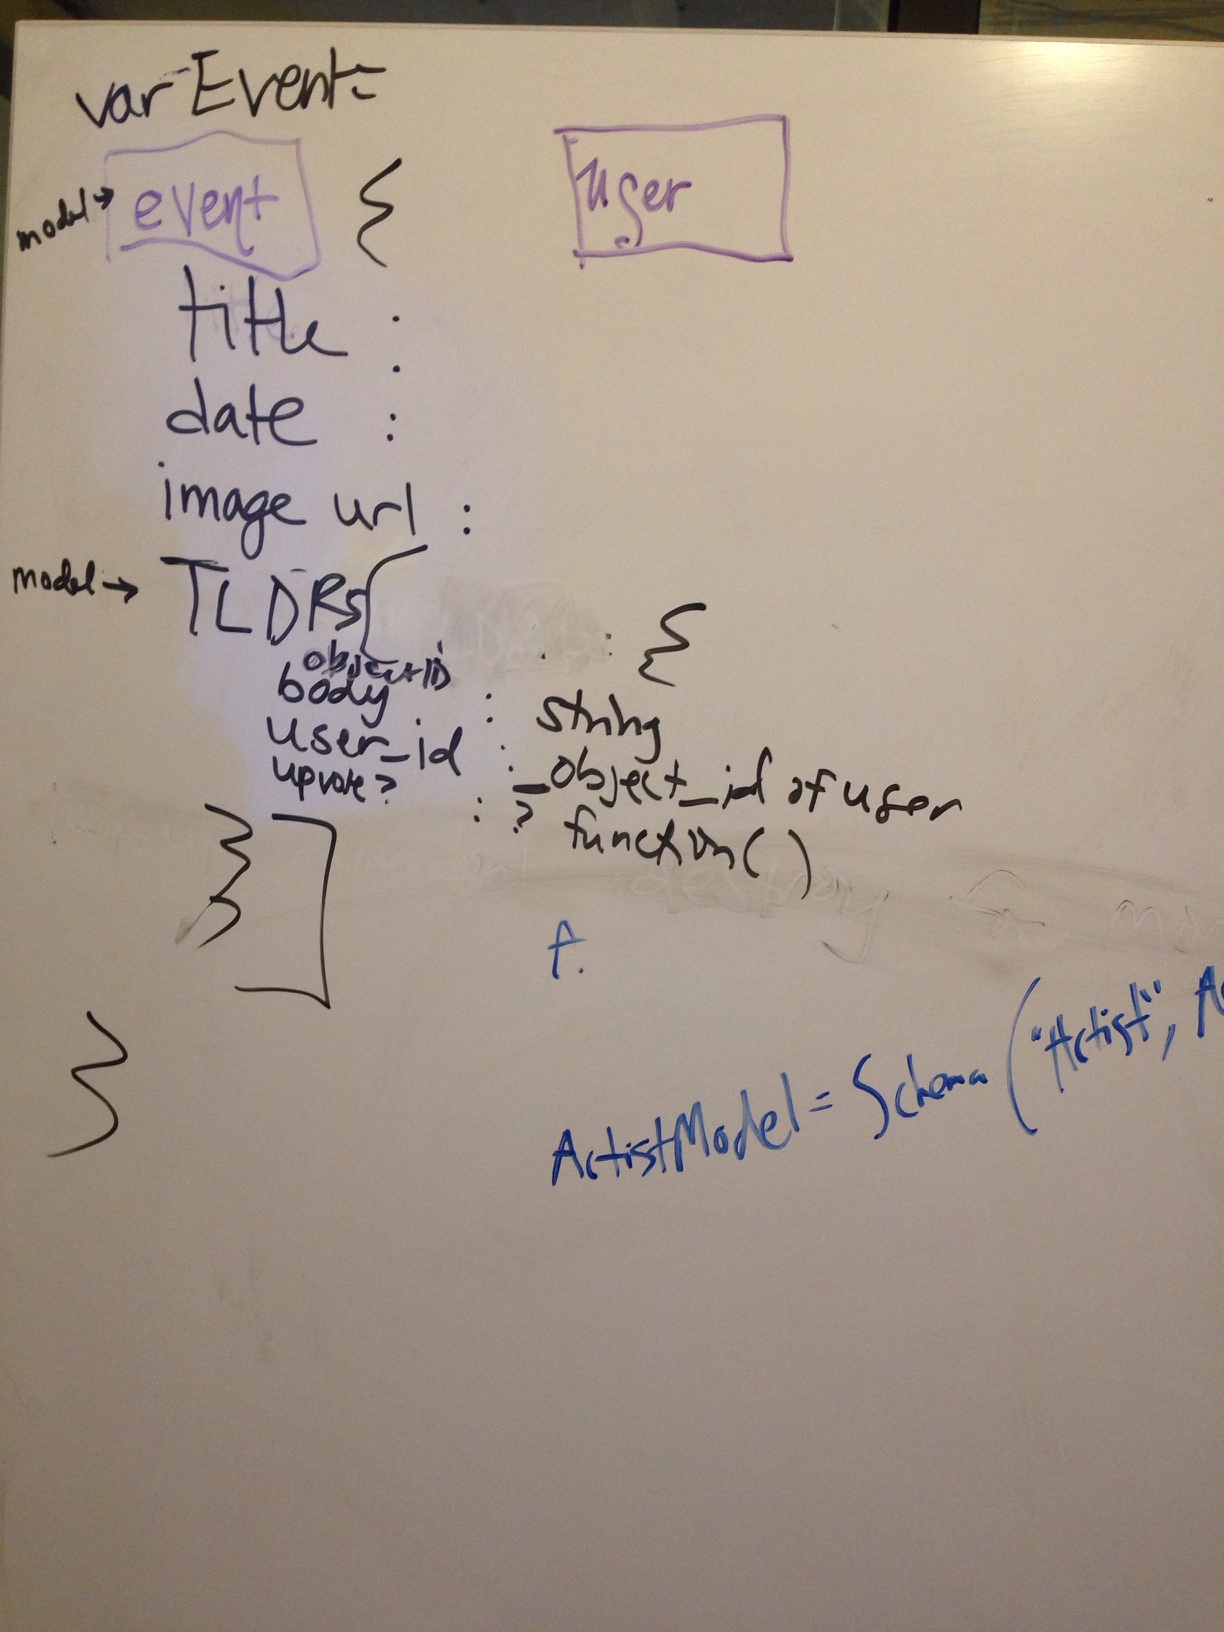 var Event =
model → event {
user
title :
date :
image url :
model → TLDRs [ : {
object ID
body : string
user_id : _object_id of user
upvote? : ? function()
} ]
A.
ArtistModel = Schema ("Artist", A
}